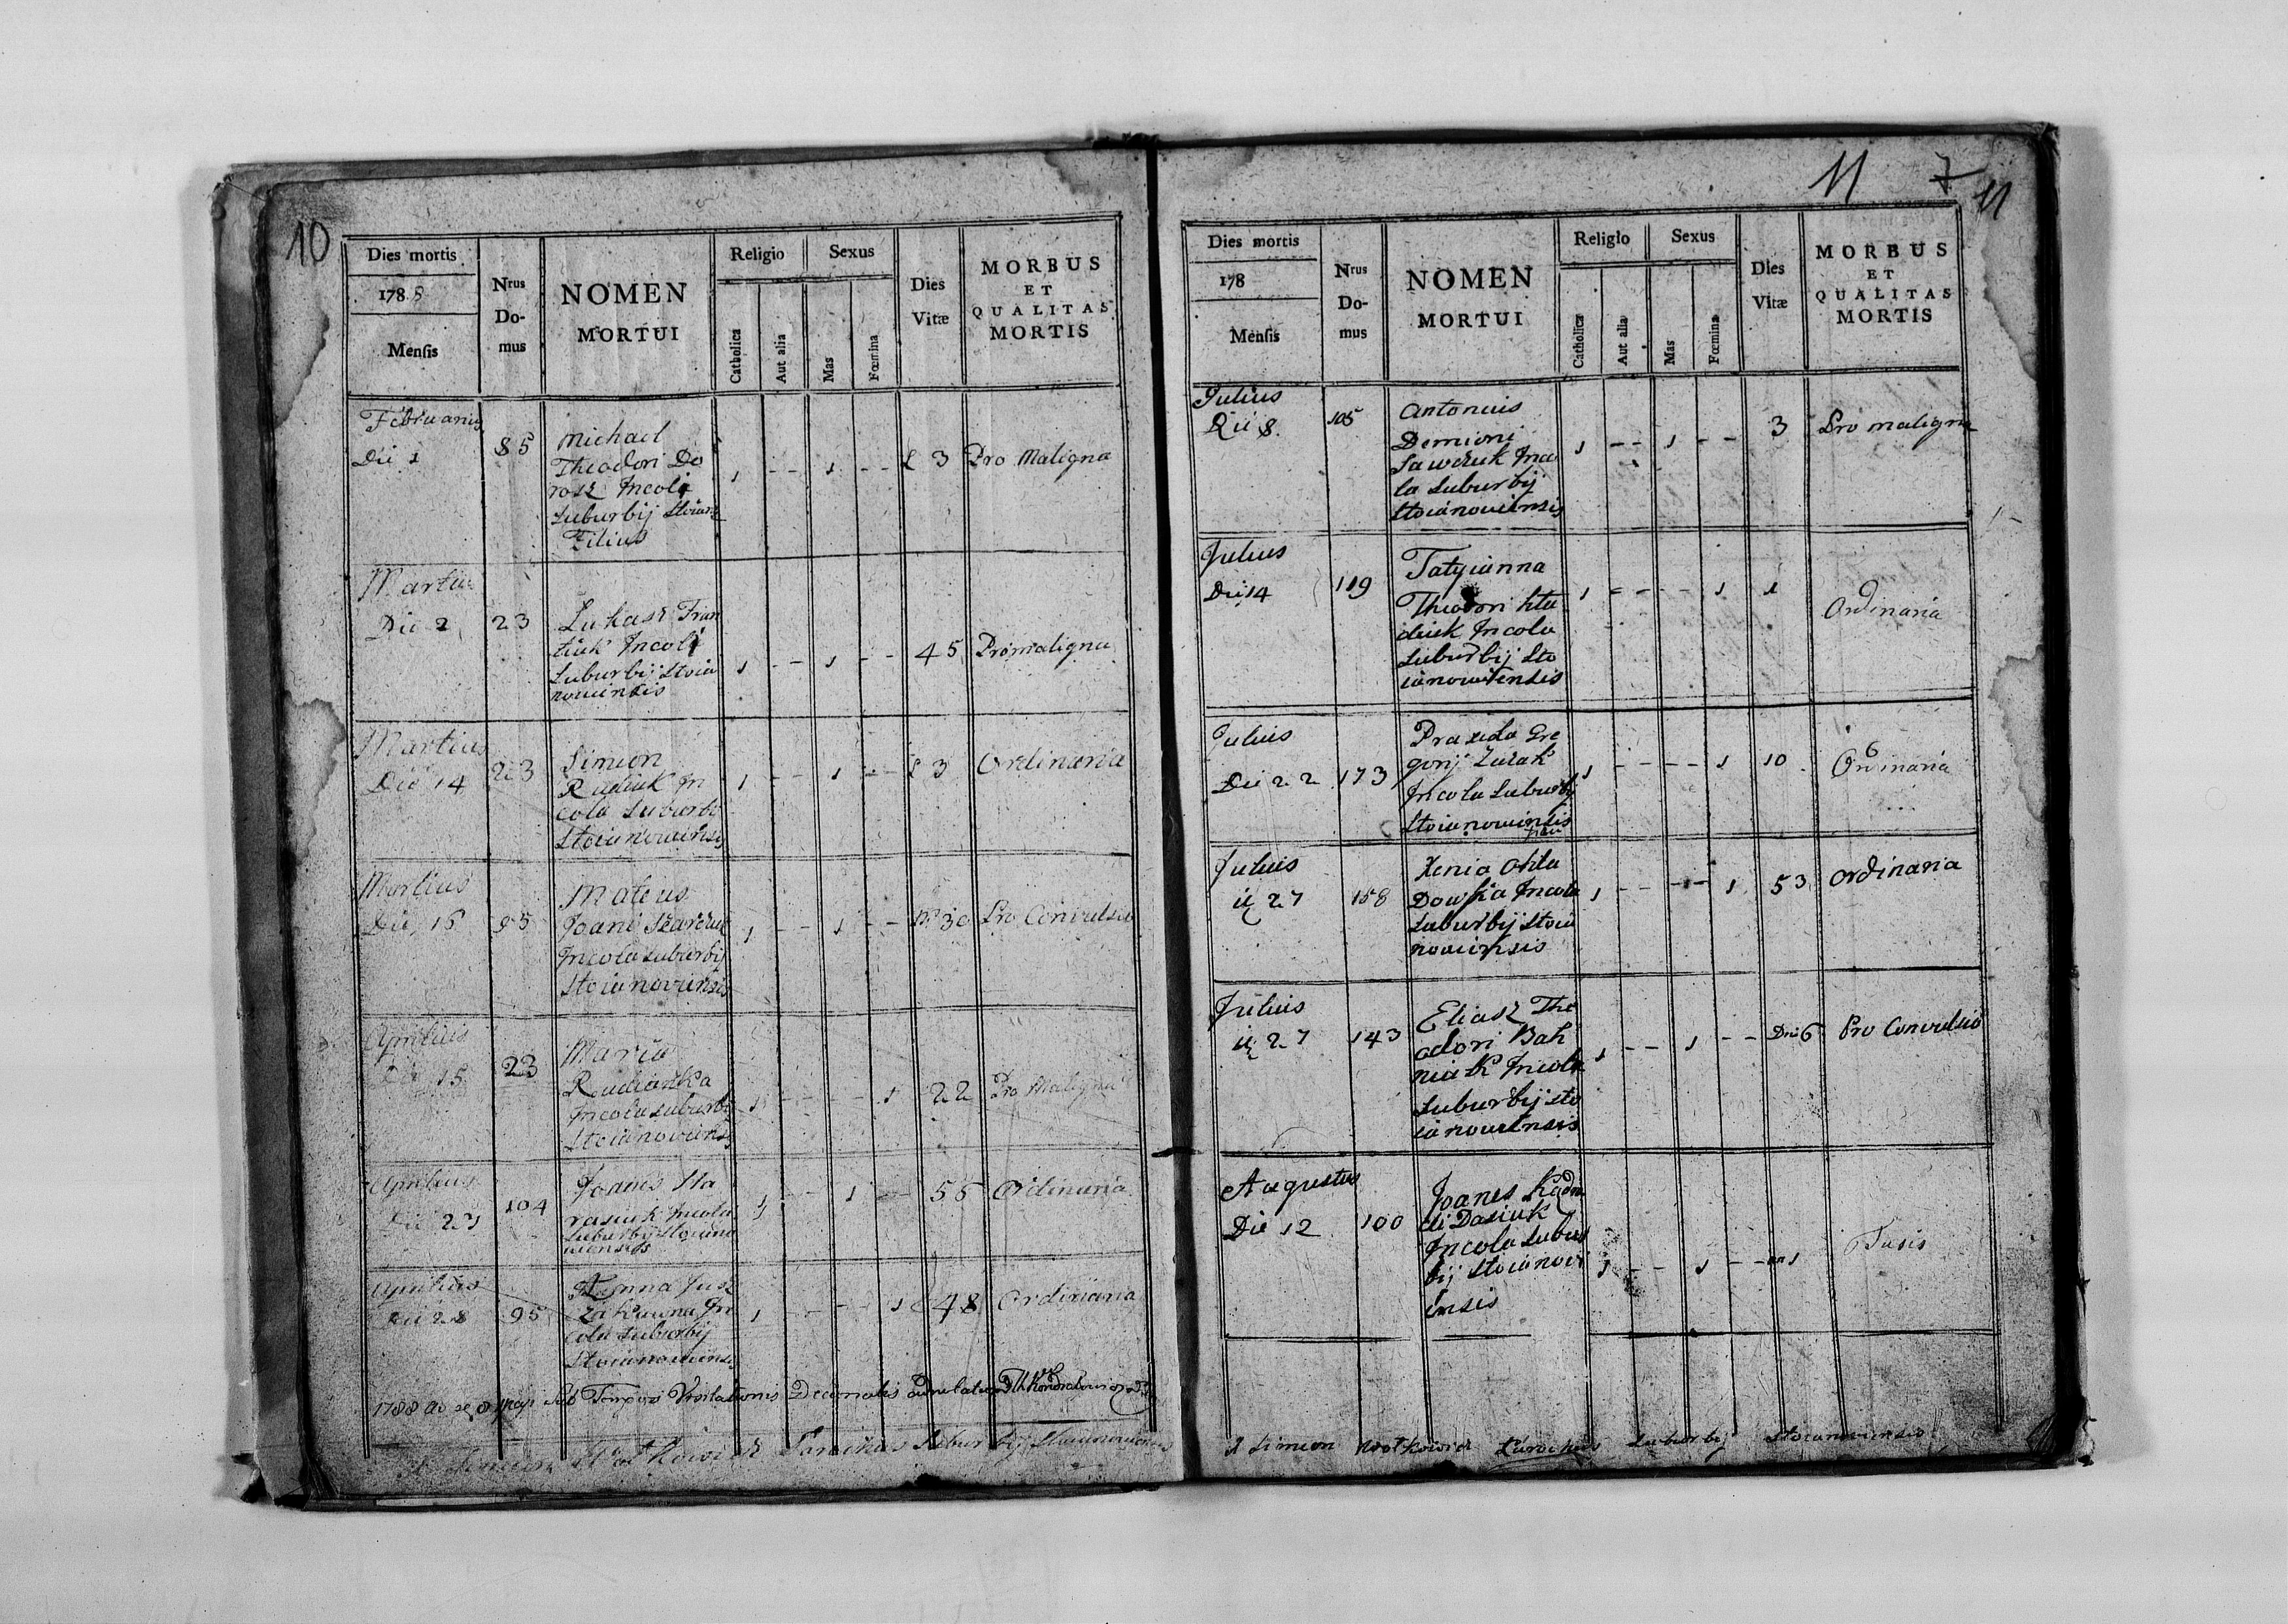 10
Dies mortis
178 8
Mensis
Nrus
Do-
mus
NOMEN
MORTUI
Religio
Catholica
Aut alia
Sexus
Mas
Fœmina
Dies
Vitæ
MORBUS
ET
QUALITAS
MORTIS
Februarius
Die 1
85
Michael
Theodori Do
rosz Incola
Suburbij Stoian
Filius
1 - - 1 - - 3 Pro Maligna
Martius
Die 2
23
Lukasz Fran
Incola
Suburbij Stoia
nowiensis
1 - - 1 - - 45 Pro maligna
Martius
Die 14
23
Simeon
Rudiuk In
cola Suburbi
Stoianowiensis
1 - - 1 - - 3 Ordinaria
Martius
Die 16
95
Mateus
Joani
Incola Suburbij
Stoianowiensis
1 - - 1 - - 30 Pro Convulsio
Aprilius
Die 15
23
Maria
Rudianka
Incola Suburbi
Stoianowiensis
1 - - - - 1 22 Pro Maligna
Aprilius
Die 27
104
Joanes Ha
rasiuk Incola
Suburbij Stoiano
wiensis
1 - - 1 - - 56 Ordinaria
Aprilius
Die 28
95
Anna Jusz
In
cola Suburbij
Stoianowiensis
1 - - - - 1 48 Ordinaria
1788 Visitationis Decanalis
Simeon Parochus Suburbij Stoianowiensis
11 7 11
Dies mortis
178
Mensis
Nrus
Do-
mus
NOMEN
MORTUI
Religio
Catholica
Aut alia
Sexus
Mas
Fœmina
Dies
Vitæ
MORBUS
ET
QUALITAS
MORTIS
Julius
Die 8
105
Antonius
Demioni
Sawczuk Inco
la Suburbij
Stoianowiensis
1 - - 1 - - 3 Pro maligna
Julius
Die 14
119
Tatyianna
Theodori Hła
diuk Incola
Suburbij Sto
ianowiensis
1 - - - - 1 1 Ordinaria
Julius
Die 22
173
Praxeda Gre
gorij
Incola Suburbij
Stoianowiensis
1 - - - - 1 10 Ordinaria
Julius
27
158
Xenia
Incola
Suburbij Stoia
nowiensis
1 - - - - 1 53 Ordinaria
Julius
27
143
Eliasz The
odori Bah
niak Incola
Suburbij Sto
ianowiensis
1 - - 1 - - Die 6 Pro Convulsio
Augustus
Die 12
100
Joanes
Dasiuk
Incola Subur
bij Stoianowi
ensis
1 - - 1 - - 1 Tusis
Simeon Parochus Suburbij Stoianowiensis